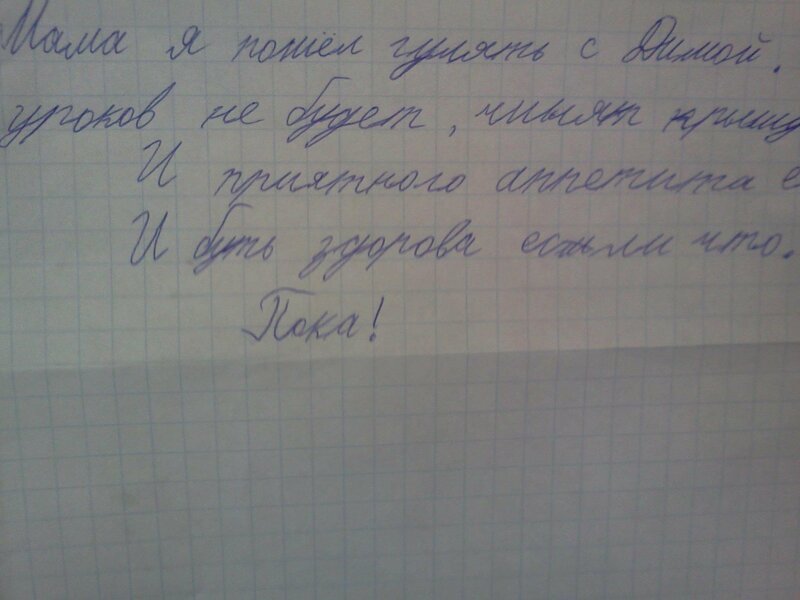 Мама я пошёл гулять с Димой.
уроков не будет, чинят крышу
И приятного аппетита е
И буть здорова есльли что.
Пока!